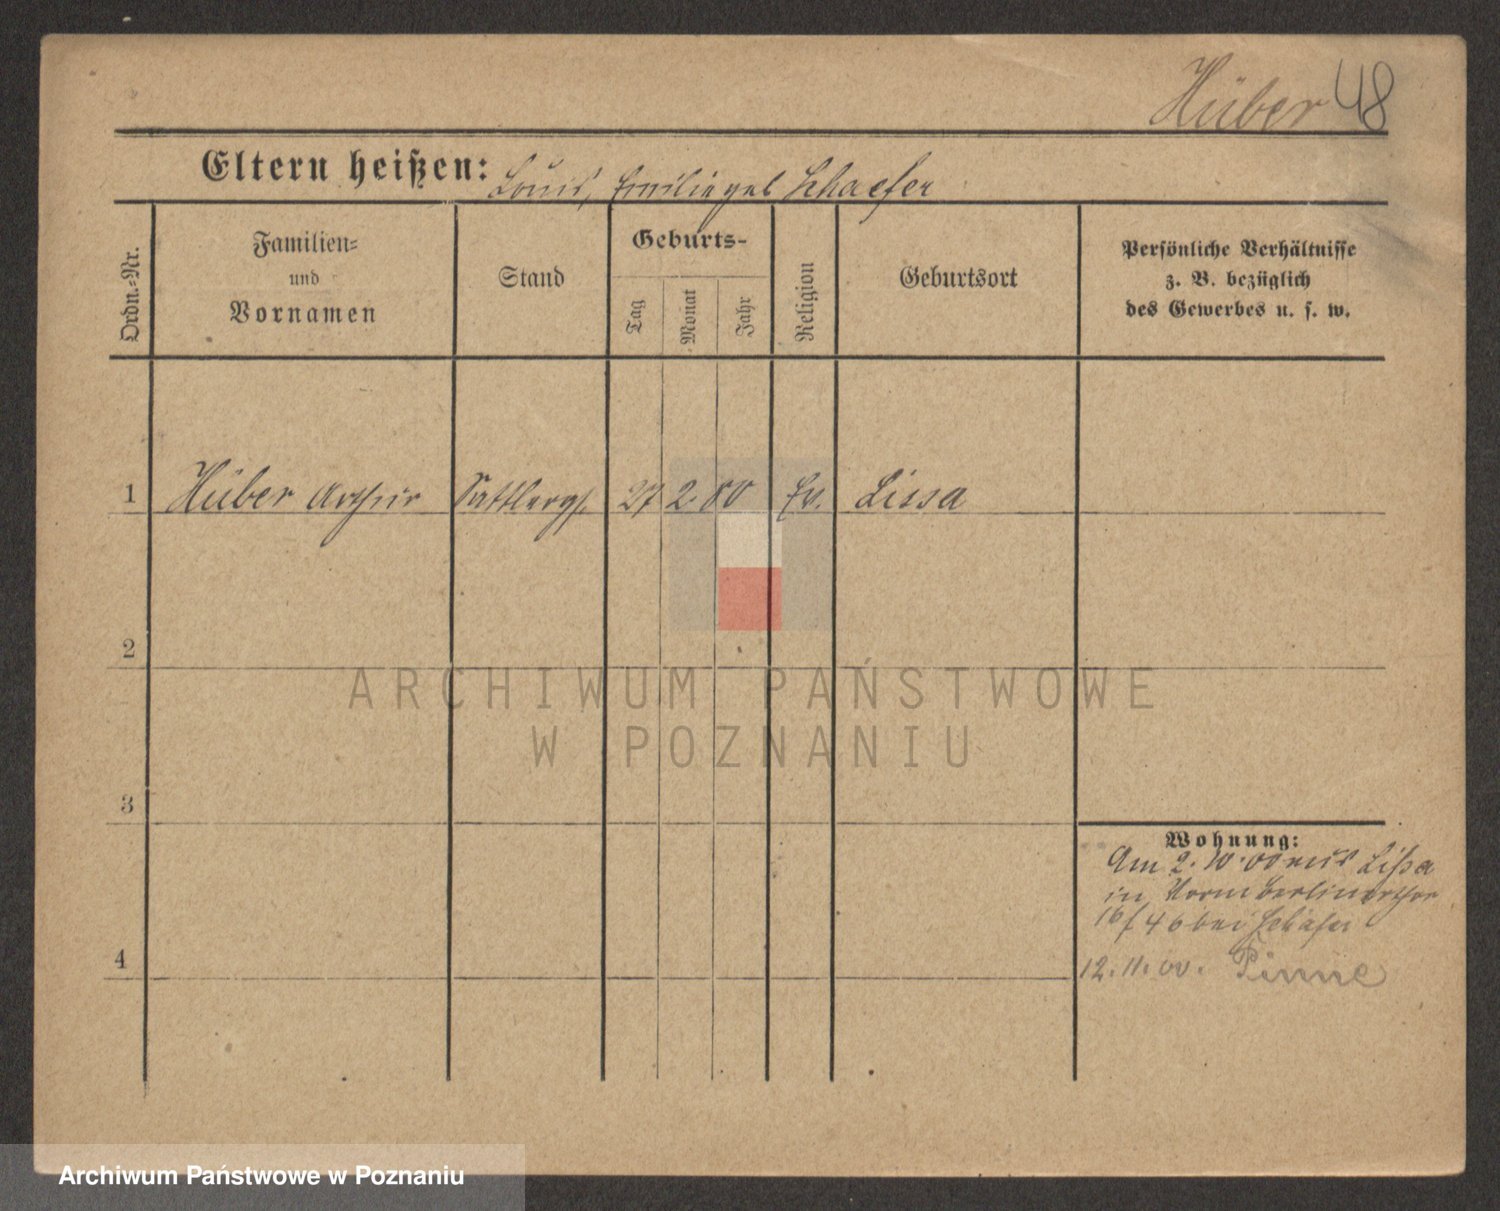 Hüber 48
Eltern heißen: Louis, Emilie gel Schaefer
Ordn.-Nr.
Familien-
und
Vornamen
Stand
Geburts-
Tag
Monat
Jahr
Religion
Geburtsort
Persönliche Verhältnisse
z. B. bezüglich
des Gewerbes u. s. w.
1 Hüber Arthur Sattlerges. 27 2. 80 Ev. Lissa
2
ARCHIWUM PAŃSTWOWE
W POZNANIU
3
Wohnung:
Am 2. 10. 00 aus Lissa
in Berlinerthor
16/46 bei Schäfer
4
12. 11. 00. Pinne
Archiwum Państwowe w Poznaniu